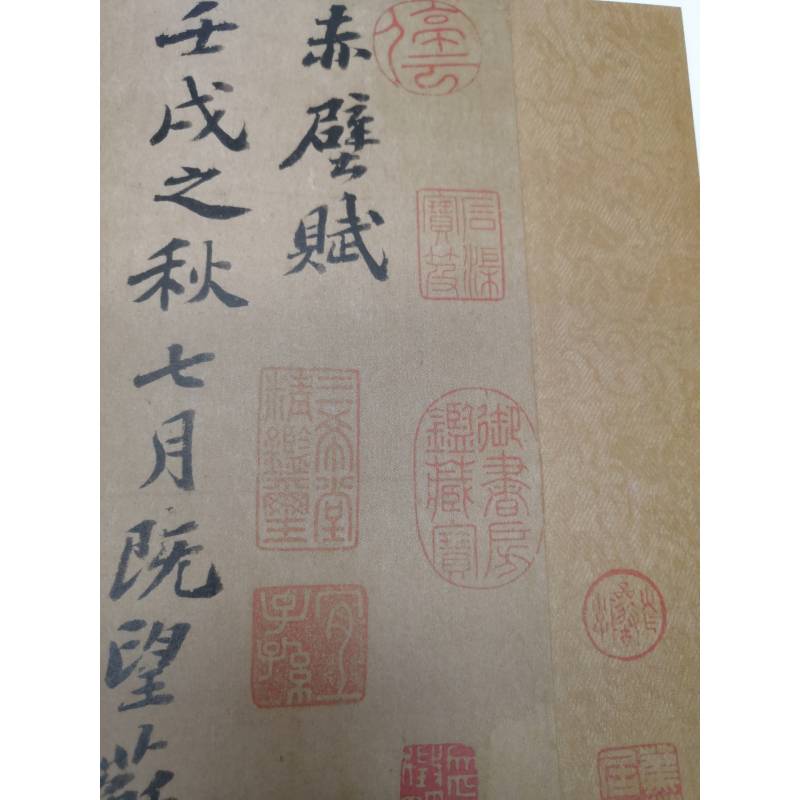 石渠寶笈
御書房鑑藏寶
赤壁賦
三希堂精鑑璽
宜子孫
壬戌之秋七月既望